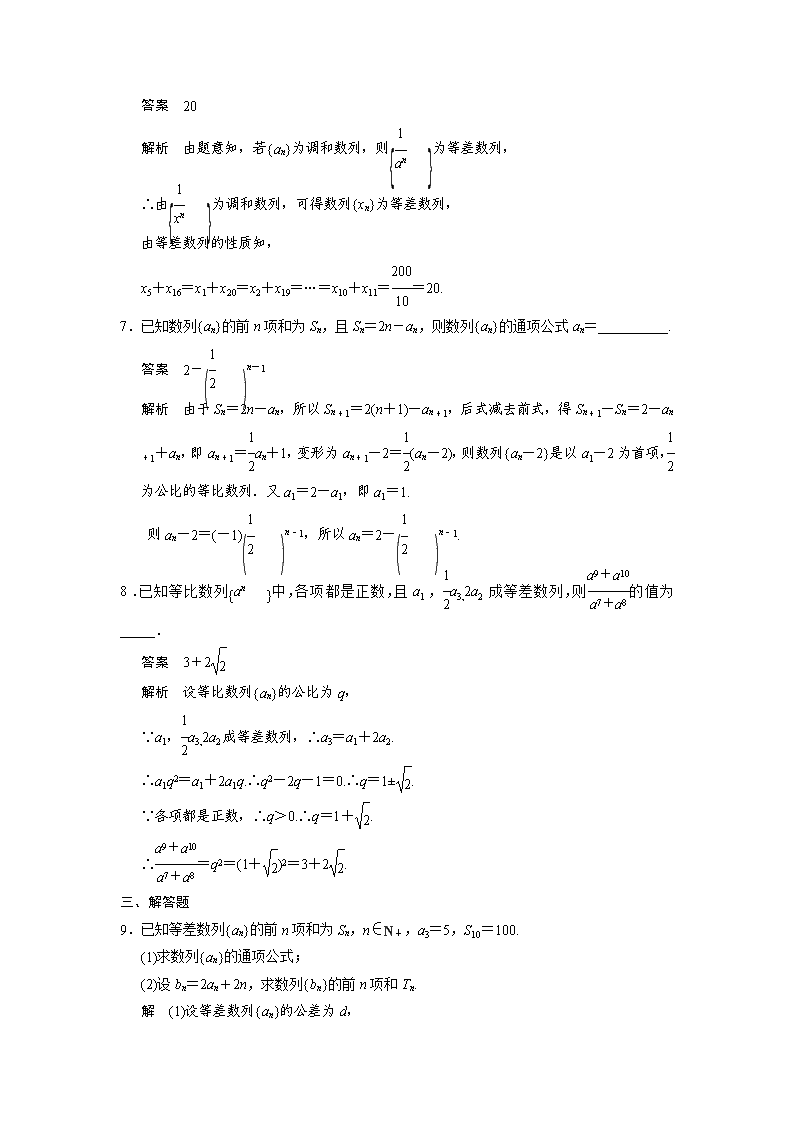 答案　20
解析　由题意知，若{aₙ}为调和数列，则{1/aₙ}为等差数列，
∴由{1/xₙ}为调和数列，可得数列{xₙ}为等差数列，
由等差数列的性质知，
x₅＋x₁₆＝x₁＋x₂₀＝x₂＋x₁₉＝…＝x₁₀＋x₁₁＝200/10＝20.
7．已知数列{aₙ}的前n项和为Sₙ，且Sₙ＝2n－aₙ，则数列{aₙ}的通项公式aₙ＝__________.
答案　2－(1/2)ⁿ⁻¹
解析　由于Sₙ＝2n－aₙ，所以Sₙ₊₁＝2(n＋1)－aₙ₊₁，后式减去前式，得Sₙ₊₁－Sₙ＝2－aₙ
₊₁＋aₙ，即aₙ₊₁＝1/2aₙ＋1，变形为aₙ₊₁－2＝1/2(aₙ－2)，则数列{aₙ－2}是以a₁－2为首项，1/2
为公比的等比数列．又a₁＝2－a₁，即a₁＝1.
则aₙ－2＝(－1)(1/2)ⁿ⁻¹，所以aₙ＝2－(1/2)ⁿ⁻¹.
8．已知等比数列{aₙ}中，各项都是正数，且a₁，1/2a₃,2a₂成等差数列，则(a₉＋a₁₀)/(a₇＋a₈)的值为
_____．
答案　3＋2√2
解析　设等比数列{aₙ}的公比为q，
∵a₁，1/2a₃,2a₂成等差数列，∴a₃＝a₁＋2a₂.
∴a₁q²＝a₁＋2a₁q.∴q²－2q－1＝0.∴q＝1±√2.
∵各项都是正数，∴q＞0.∴q＝1＋√2.
∴(a₉＋a₁₀)/(a₇＋a₈)＝q²＝(1＋√2)²＝3＋2√2.
三、解答题
9．已知等差数列{aₙ}的前n项和为Sₙ，n∈N₊，a₃＝5，S₁₀＝100.
(1)求数列{aₙ}的通项公式；
(2)设bₙ＝2aₙ＋2n，求数列{bₙ}的前n项和Tₙ.
解　(1)设等差数列{aₙ}的公差为d，